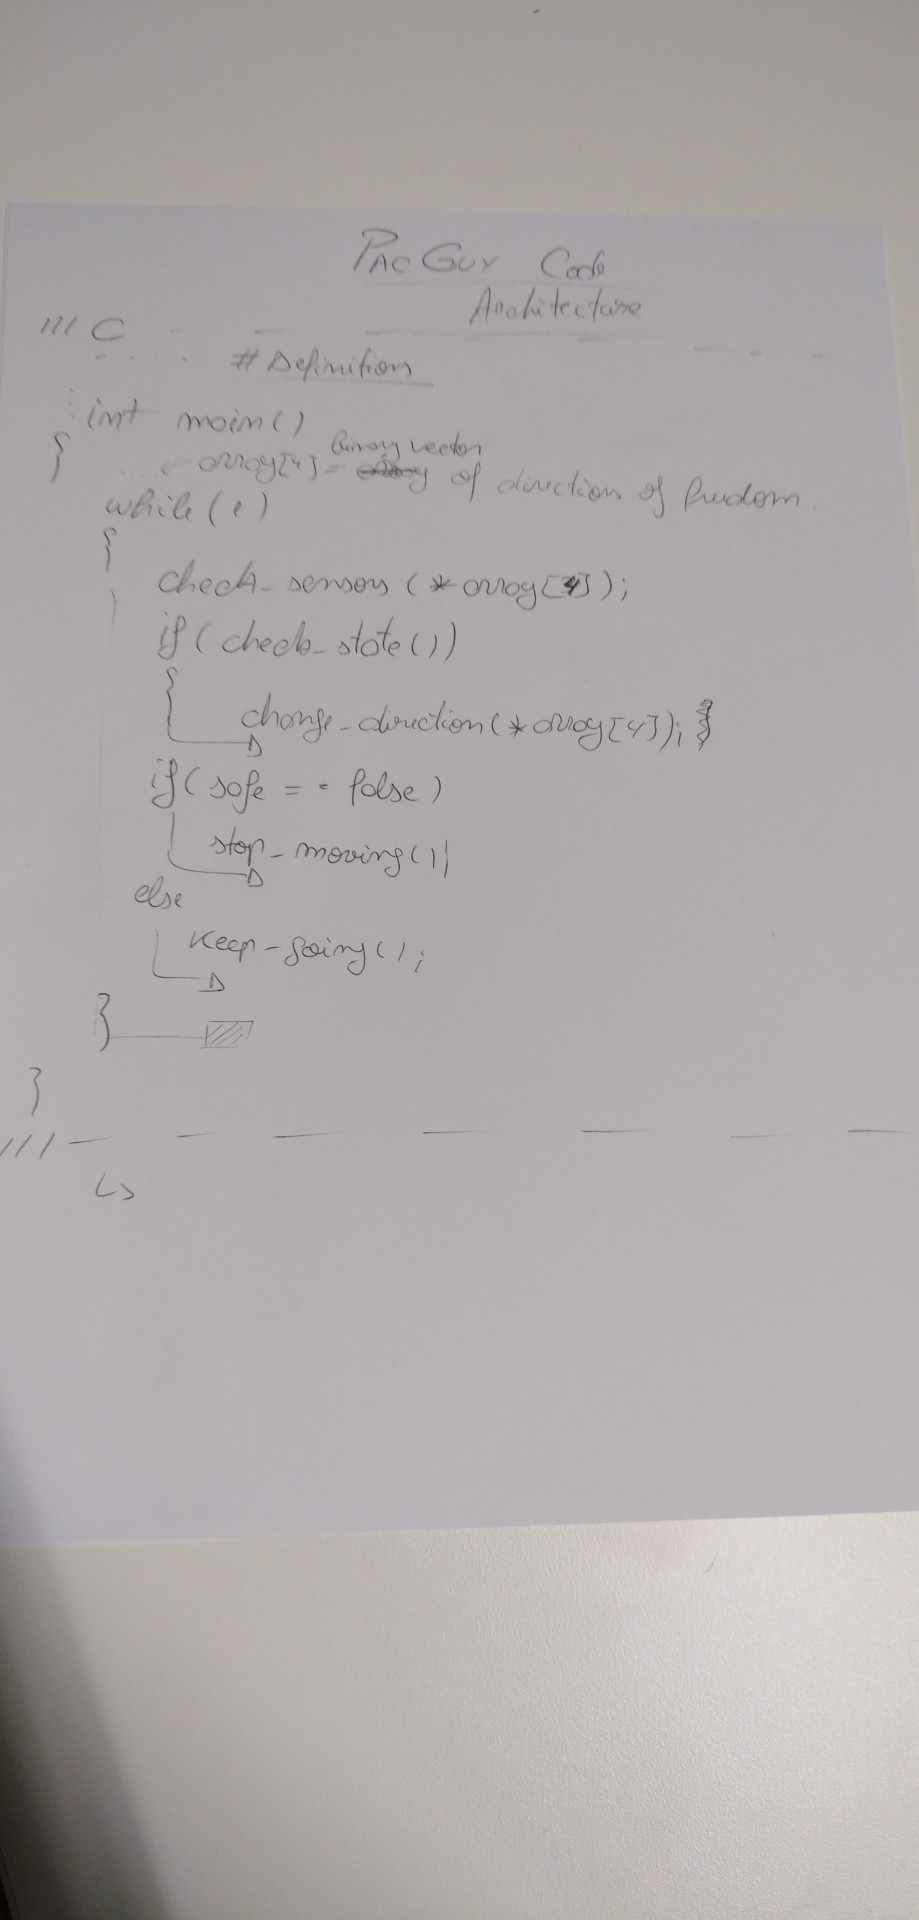 PAC GUY Code
Architecture
/// C
# Definition
int main()
{
array[4] = Binary vector of direction of freedom.
while(1)
{
check_sensors (*array[4]);
if (check_state())
{
change_direction(*array[4]); }
if (safe == false)
stop_moving();
else
keep-going();
}
}
///